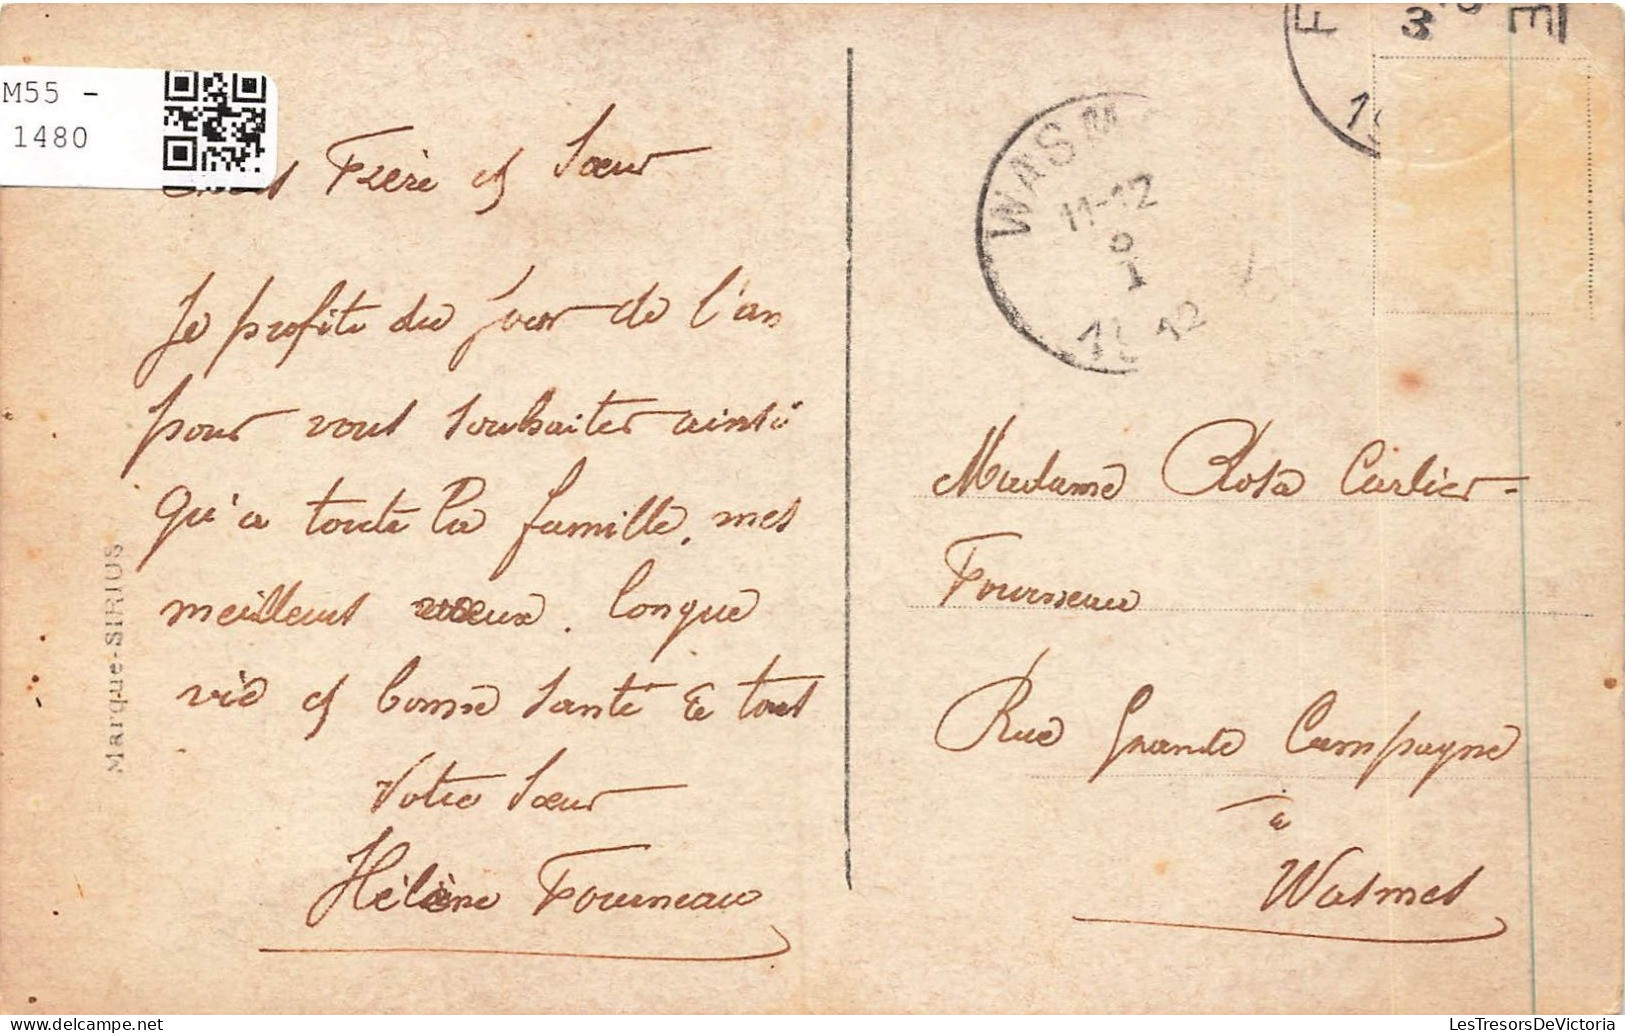 M55 -
1480
Frère et Sœur
Je profite du jour de l'an
pour vous souhaiter ainsi
qu'a toute la famille, mes
meilleurs vœux. longue
vie et bonne santé a tous
Votre Sœur
Hélène Fourneau
Marque-SIRIUS
WASM
11-12
I
12
3
E
Madame Rosa Carlier-
Fourneau
Rue Grande Campagne
à
Wasmes
LesTresorsDeVictoria